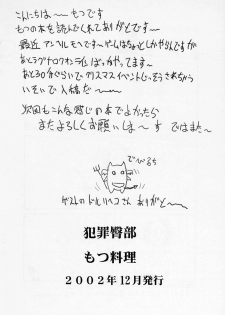 こんにちは〜 もつです
もつの本を読んでくれてありがとです〜
最近 アンソルモヘアです〜ゲームはちょとしかやらんですが
あとラグナロクオンラインばっかやってます〜
あと30分ぐらいでクリスマスイベントじっそうされちゃう
いそいで入稿だ〜
次回もこんな感じの本でよかったら
またよろしくお願いしま〜す ではまた〜
でべるち
ゲストの さん ありがと〜
犯罪臀部
もつ料理
2002年12月発行